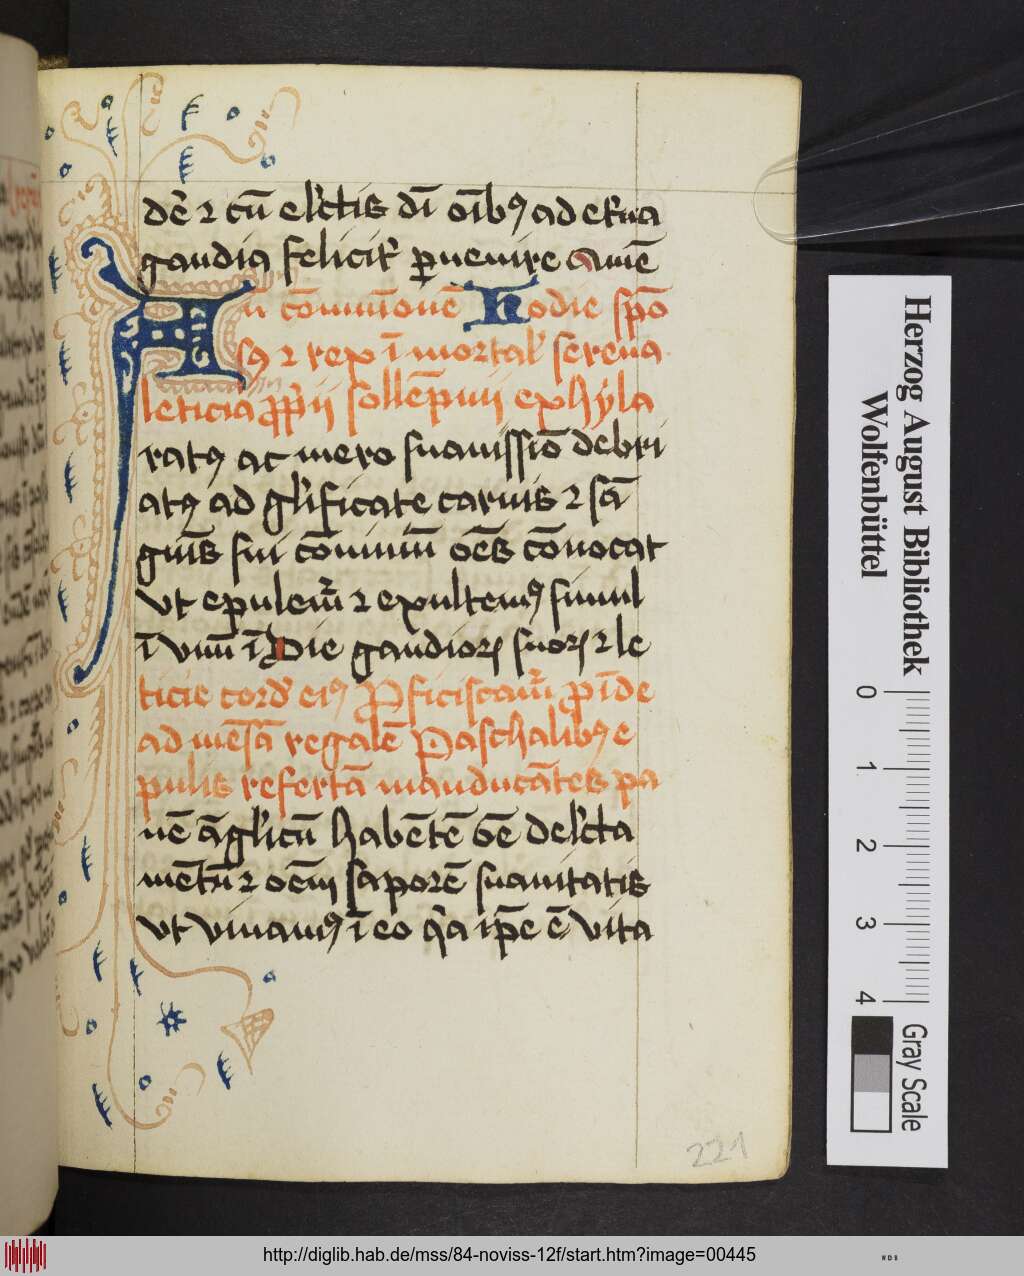 dē ⁊ cū el'ctis dī oībꝰ ad et'na
gaudia felicit' ꝑuenire amē
ū cōmuīonē Hodie spō
sꝰ ⁊ rex ī mortal' serena
leticia ꝓp'ij sollēpnij exhyla
ratꝰ ac mero suauissīo debri
atꝰ ad gl'ificate carnis ⁊ sā
guīs sui cōmuniū oēs cōuocat
vt epulem̄ ⁊ exultemꝰ simul
ī vnū ī die gaudioꝝ suoꝝ ⁊ le
ticie cord' eiꝰ ꝓficiscam̄ ꝓīde
ad mēsā regalē Paschalibꝰ e
pulis refertā manducātes pa
nē āgl'icū habētē oē del'cta
mētū ⁊ oēm saporē suauitatis
vt viuamꝰ ī eo q'a ip̄e ē vita
221
Herzog August Bibliothek
Wolfenbüttel
0 1 2 3 4
Gray Scale
http://diglib.hab.de/mss/84-noviss-12f/start.htm?image=00445